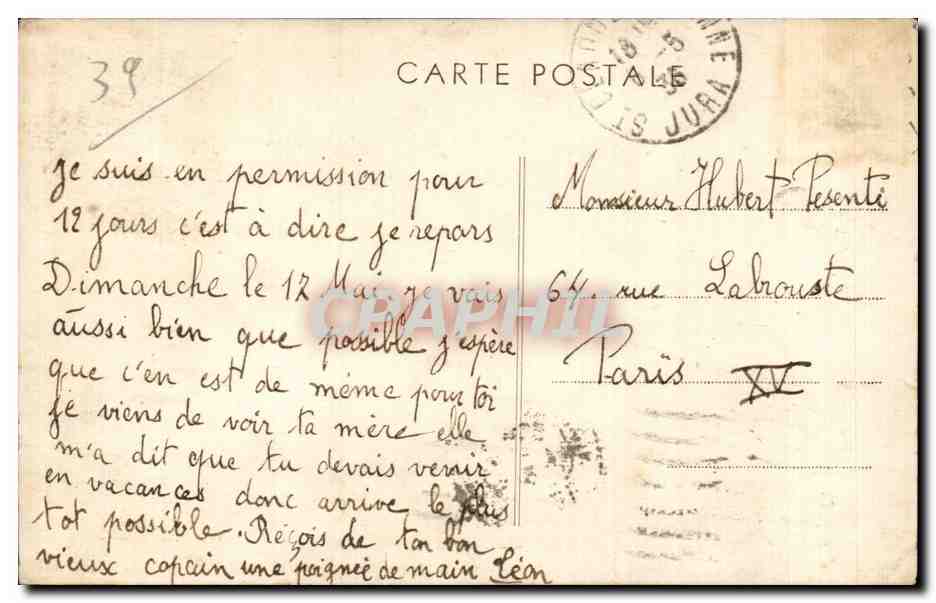 39
CARTE POSTALE
18
ST JURA
Je suis en permission pour
12 jours c'est à dire je repars
Dimanche le 12 Mai, je vais
aussi bien que possible j'espère
que c'en est de même pour toi
je viens de voir ta mère elle
m'a dit que tu devais venir
en vacances donc arrive le plus
tot possible. Réçois de ton bon
vieux copain une poignée de main Léon
Monsieur Hubert Pesenti
64. rue Labrouste
Paris XV
CPAPHIL